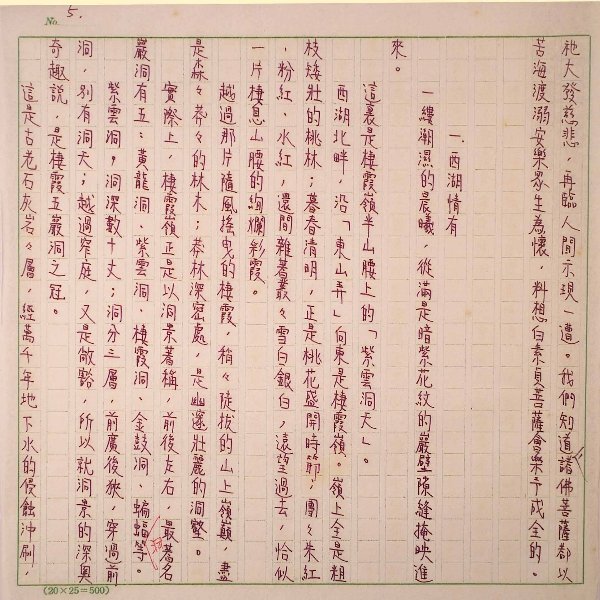 No. 5.
祂大發慈悲，再臨人間示現一遭。我們知道諸佛菩薩都以
苦海渡溺安樂眾生為懷，料想白素貞菩薩會樂予成全的。
一、西湖情有
一縷潮濕的晨曦，從滿是暗紫花紋的巖壁隙縫掩映進
來。
這裏是棲霞嶺半山腰上的「紫雲洞天」。
西湖北畔，沿「東山弄」向東是棲霞嶺。嶺上全是粗
枝矮壯的桃林；暮春清明，正是桃花盛開時節；團々朱紅
、粉紅、水紅，還間雜著叢々雪白銀白，遠望過去，恰似
一片棲息山腰的絢爛彩霞。
越過那片隨風搖曳的棲霞，稍々陡拔的山上嶺巔，盡
是森々莽々的林木；莽林深密處，是幽邃壯麗的洞壑。
實際上，棲霞嶺正是以洞景著稱，前後左右，最著名
巖洞有五：黃龍洞、紫雲洞、棲霞洞、金鼓洞、蝙蝠洞等。
紫雲洞，洞深數十丈；洞分三層，前廣後狹，穿過前
洞，別有洞天；越過窄庭，又是敞豁，所以就洞景的深奧
奇趣說，是棲霞五巖洞之冠。
這是古老石灰岩々層，經萬千年地下水的侵蝕沖刷，
(20×25=500)